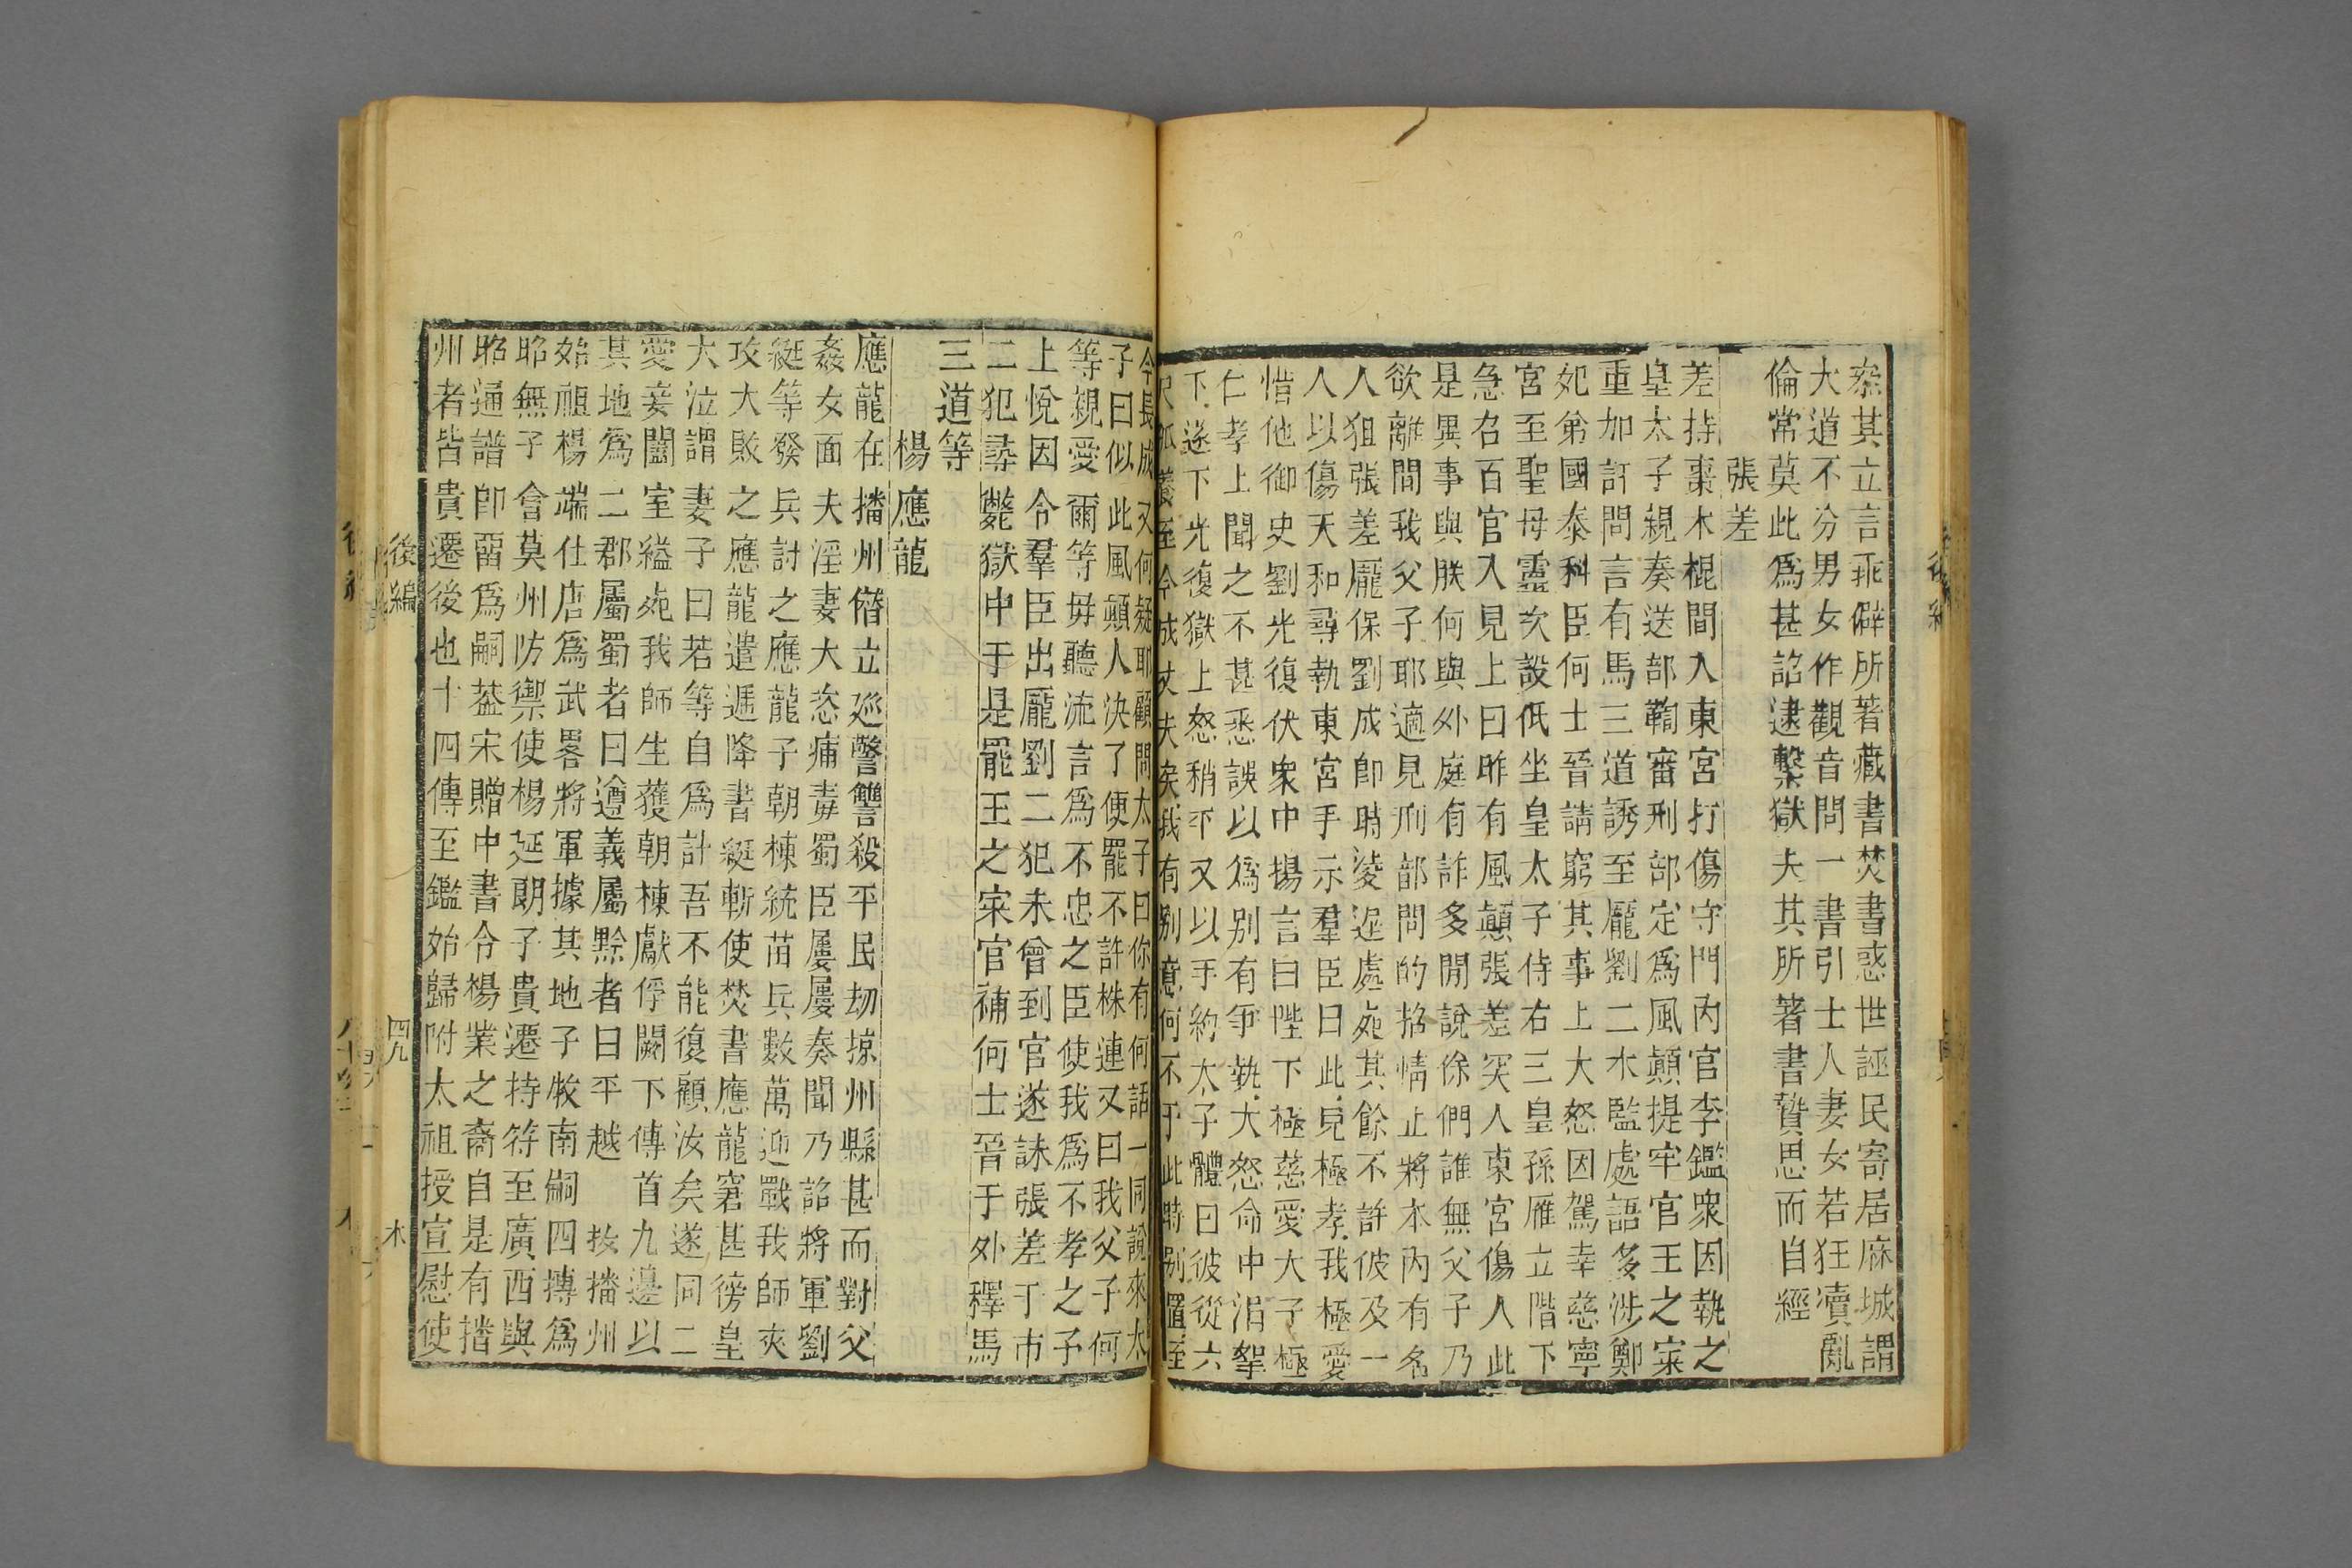 叅其立言乖僻所著藏書焚書惑世誣民寄居麻城謂
大道不分男女作觀音問一書引士人妻女若狂瀆亂
倫常莫此爲甚詔逮繫獄夫其所著書贊思而自經
張差
差持棗木棍間入東宮打傷守門內官李鑑衆因執之
皇太子親奏送部鞫審刑部定爲風顛提牢官王之寀
重加訂問言有馬三道誘至龐劉二水監處語多涉鄭
妃弟國泰科臣何士晉請窮其事上大怒因駕幸慈寧
宮至聖母靈次設低坐皇太子侍右三皇孫雁立階下
急召百官入見上曰昨有風顛張差突入東宮傷人此
是異事與朕何與外庭有許多閒說徐們誰無父子乃
欲離間我父子耶適見刑部問的招情止將本內有名
人狙張差龐保劉成即時淩遲處死其餘不許彼及一
人以傷天和尋執東宮手示羣臣曰此兒極孝我極愛
惜他御史劉光復伏衆中揚言曰陛下極慈愛大子極
仁孝上聞之不甚悉誤以爲别有爭執大怒命中涓拏
下遂下光復獄上怒稍平又以手約太子體曰彼從六
尺孤養至今成丈夫矣我有别意何不于此時别置至
今長成又何疑耶顧問太子曰你有何話一同說來太
子曰似此風顛人決了便罷不許株連又曰我父子何
等親愛爾等毋聽流言爲不忠之臣使我爲不孝之子
上悅因令羣臣出龐劉二犯未曾到官遂誅張差于市
二犯尋斃獄中于是罷王之寀官補何士晉于外釋馬
三道等
楊應龍
應龍在播州僭立廵警讐殺平民刼掠州縣甚而對父
姦女面夫淫妻大恣痡毒蜀臣屢屢奏聞乃詔將軍劉
綎等發兵討之應龍子朝棟統苗兵數萬迎戰我師夾
攻大敗之應龍遣遞降書綎斬使焚書應龍窘甚徬皇
大泣謂妻子曰若等自爲計吾不能復顧汝矣遂同二
愛妾闔室縊死我師生獲朝棟獻俘闕下傳首九邊以
其地爲二郡屬蜀者曰遵義屬黔者曰平越　按播州
始祖楊端仕唐爲武畧將軍據其地子牧南嗣四摶爲
昭無子會莫州防禦使楊延朗子貴遷持符至廣西與
昭通譜即畱爲嗣葢宋贈中書令楊業之裔自是有播
州者皆貴遷後也十四傳至鑑始歸附太祖授宣慰使
後編
四九
木